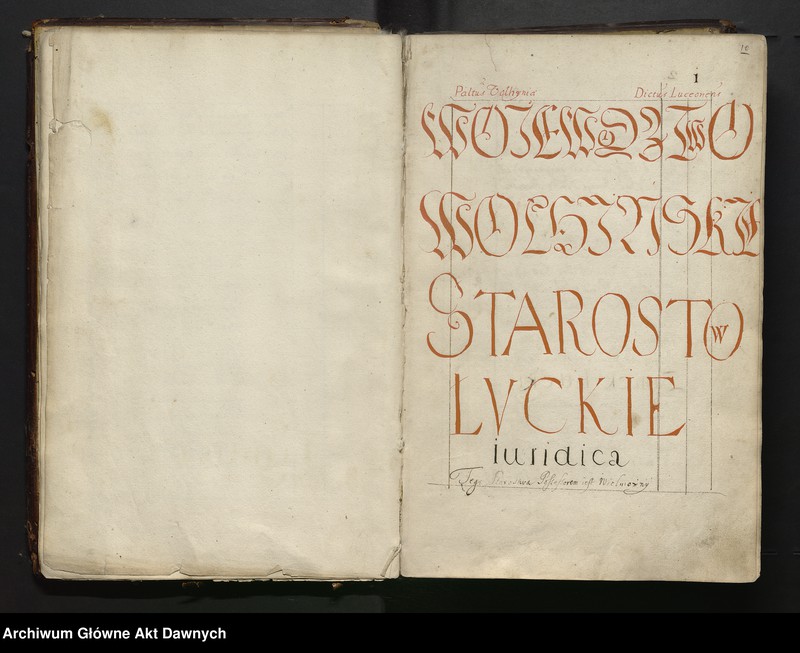 1
Paltus Volhynia Dictus Luceoneñs
WOIEWODZTWO
WOLHINSKIE
STAROSTwO
LVCKIE
iuridica
Tego Starostwa Possessorem iest Wielmozny
Archiwum Główne Akt Dawnych